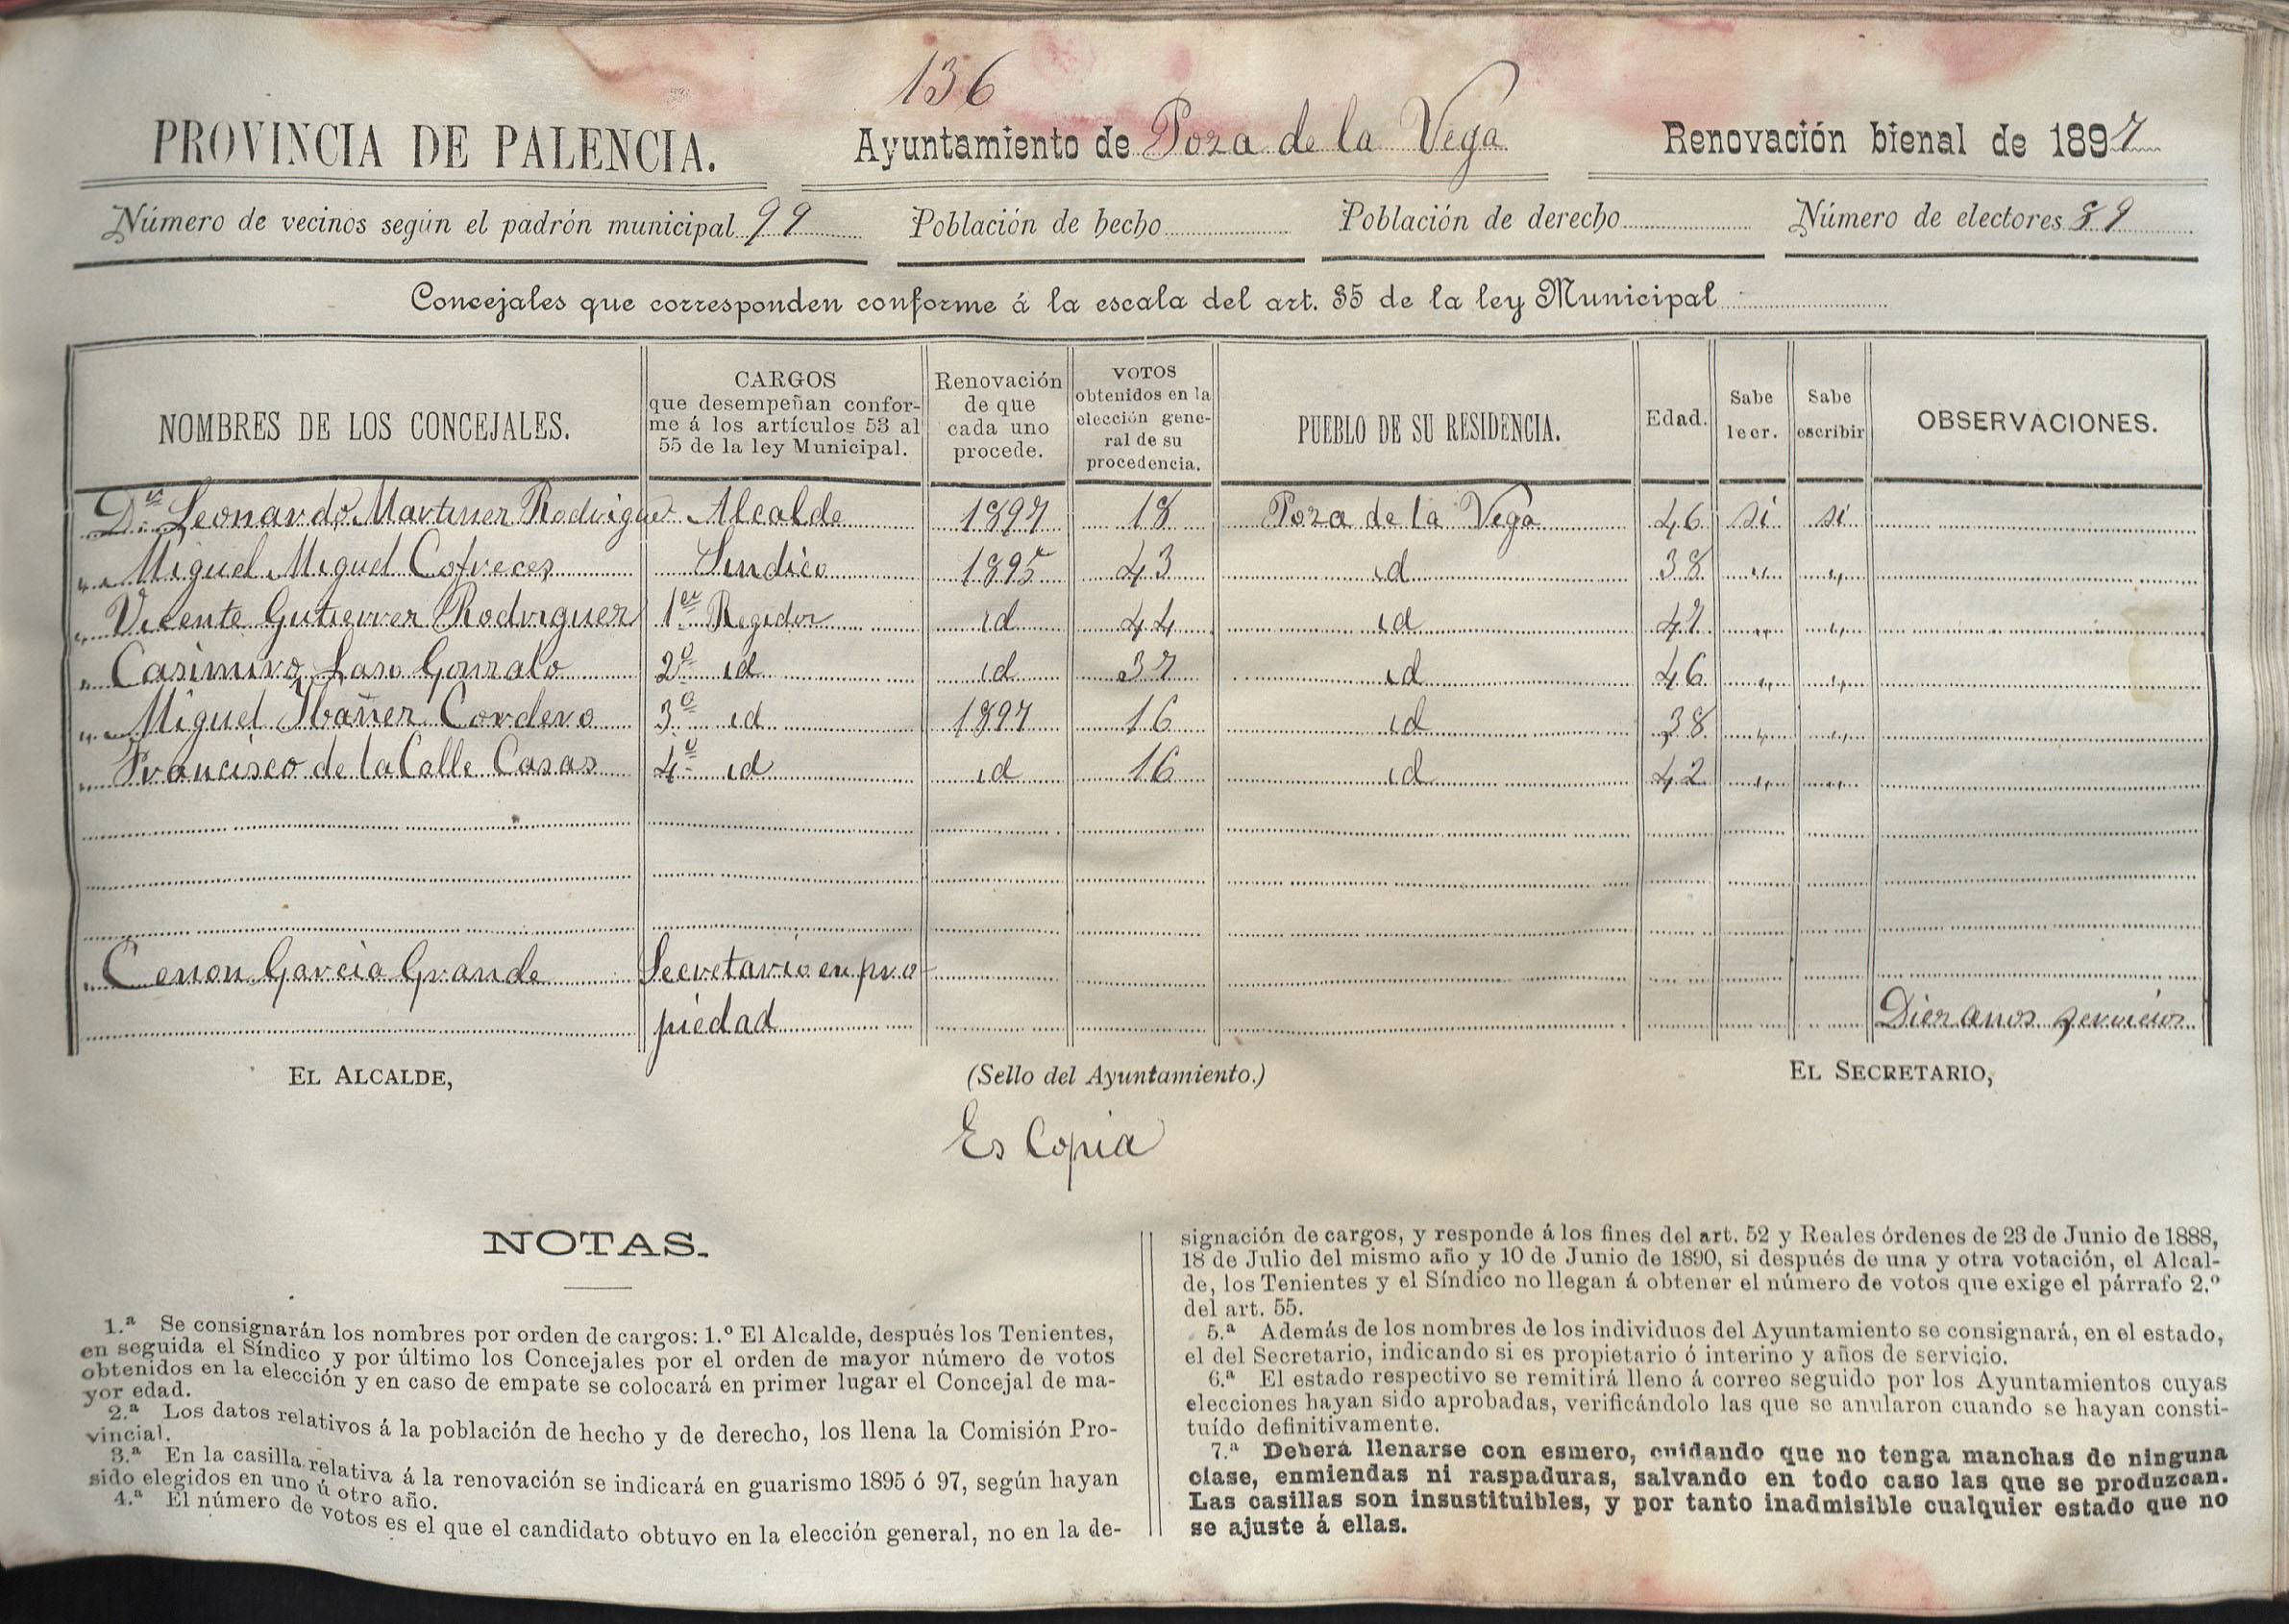 136
PROVINCIA DE PALENCIA. Ayuntamiento de Poza de la Vega Renovación bienal de 1897
Número de vecinos según el padrón municipal 99 Población de hecho Población de derecho Número de electores 89
Concejales que corresponden conforme á la escala del art. 35 de la ley Municipal
NOMBRES DE LOS CONCEJALES. CARGOS que desempeñan confor-me á los artículos 53 al 55 de la ley Municipal. Renovación de que cada uno procede. VOTOS obtenidos en la elección gene-ral de su procedencia. PUEBLO DE SU RESIDENCIA. Edad. Sabe leer. Sabe escribir OBSERVACIONES.
Dn Leonardo Martinez Rodriguez Alcalde 1897 18 Poza de la Vega 46 si si
" Miguel Miguel Cofreces Sindico 1895 43 id 38 " "
" Vicente Gutierrez Rodriguez 1er Regidor id 44 id 47 " "
" Casimiro Laso Gonzalo 2º id id 37 id 46 " "
" Miguel Ibañez Cordero 3º id 1897 16 id 38 " "
" Francisco de la Calle Casas 4º id id 16 id 42 " "
" Cenon Garcia Grande Secretario en pro-
piedad Diez años servicios
EL ALCALDE, (Sello del Ayuntamiento.) EL SECRETARIO,
Es Copia
NOTAS.
1.ª Se consignarán los nombres por orden de cargos: 1.º El Alcalde, después los Tenientes,
en seguida el Síndico y por último los Concejales por el orden de mayor número de votos
obtenidos en la elección y en caso de empate se colocará en primer lugar el Concejal de ma-
yor edad.
2.ª Los datos relativos á la población de hecho y de derecho, los llena la Comisión Pro-
vincial.
3.ª En la casilla relativa á la renovación se indicará en guarismo 1895 ó 97, según hayan
sido elegidos en uno ú otro año.
4.ª El número de votos es el que el candidato obtuvo en la elección general, no en la de-
signación de cargos, y responde á los fines del art. 52 y Reales órdenes de 23 de Junio de 1888,
18 de Julio del mismo año y 10 de Junio de 1890, si después de una y otra votación, el Alcal-
de, los Tenientes y el Síndico no llegan á obtener el número de votos que exige el párrafo 2.º
del art. 55.
5.ª Además de los nombres de los individuos del Ayuntamiento se consignará, en el estado,
el del Secretario, indicando si es propietario ó interino y años de servicio.
6.ª El estado respectivo se remitirá lleno á correo seguido por los Ayuntamientos cuyas
elecciones hayan sido aprobadas, verificándolo las que se anularon cuando se hayan consti-
tuído definitivamente.
7.ª Deberá llenarse con esmero, cuidando que no tenga manchas de ninguna
clase, enmiendas ni raspaduras, salvando en todo caso las que se produzcan.
Las casillas son insustituibles, y por tanto inadmisible cualquier estado que no
se ajuste á ellas.